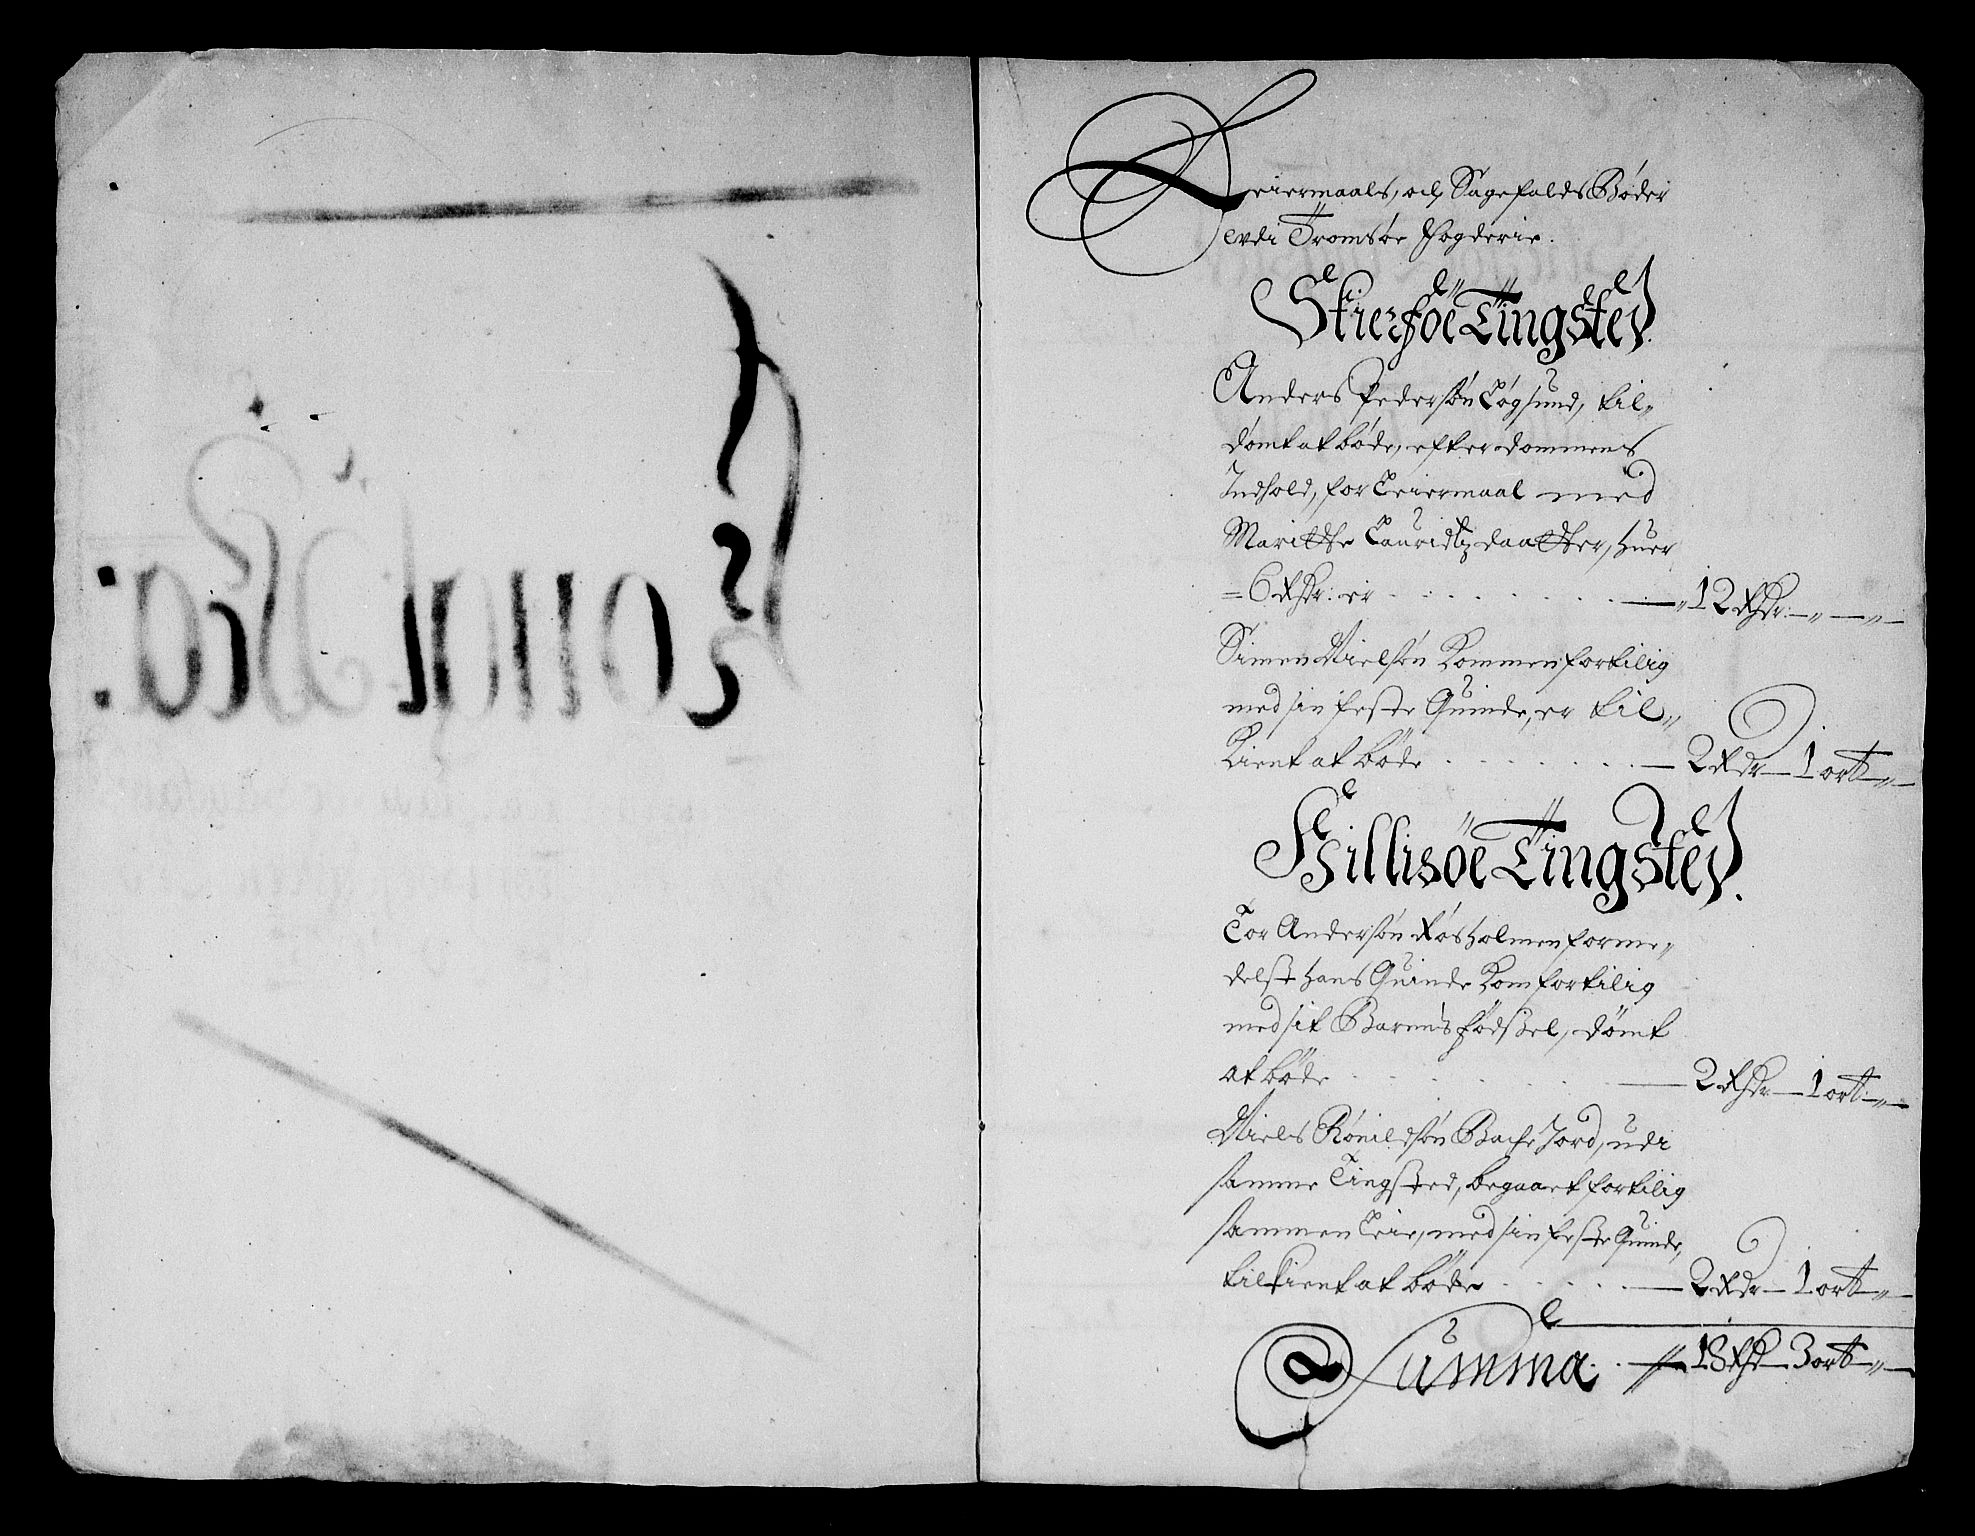 Leiermaals, och Sagefalds Bøder
Udi Tromsøe fogderie.
Skierføe Tingsted.
Anders Pedersøn Løgsund, til-
dømt at bøde, efter dommens
Indhold, for Leiermaal med
Maritte Lauridtz daatter, huer
= 6 Rhdr: er - 12 Rhdr: - " - " -
Simen Nielsøn kommen fortilig
med sin feste Quinde, er til-
kient at bøde - 2 Rdr - 1 ort - " -
Hillisøe Tingsted.
Tor Andersøn Røsholmen forme-
delst hans Quinde kom fortilig
med sit Barns fødssel, dømt
at bøde - 2 Rhdr - 1 ort - " -
Niels Bache Jord, udi
samme Tingsted, begaaet fortilig
sammen Leie, med sin feste Quinde,
tilkient at bøde - 2 Rdr - 1 ort - " -
Summa - 18 Rhd - 3 ort - " -